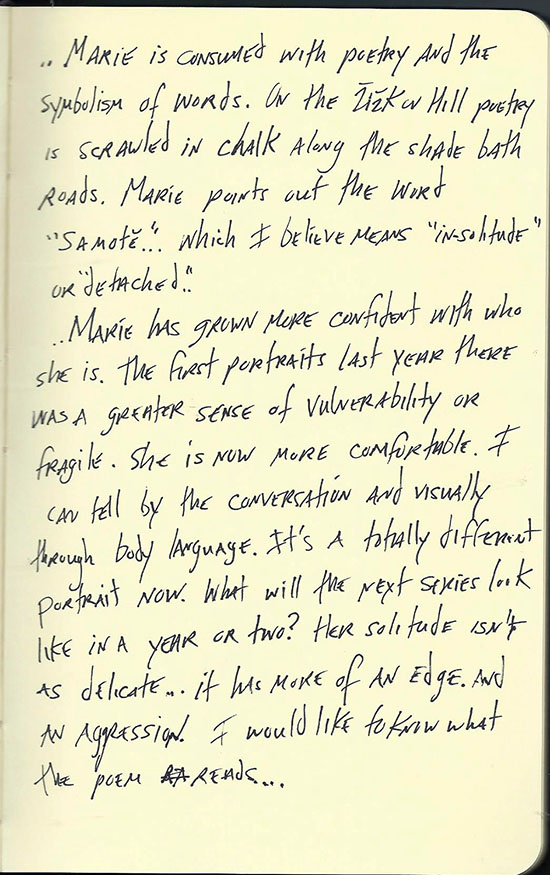 .. Marie is consumed with poetry and the
symbolism of words. On the Žižkov Hill poetry
is scrawled in chalk along the shade bath
roads. Marie points out the word
"Samotě..." which I believe means "in-solitude"
or "detached."
.. Marie has grown more confident with who
she is. The first portraits last year there
was a greater sense of vulnerability or
fragile. She is now more comfortable. I
can tell by the conversation and visually
through body language. It's a totally different
portrait now. What will the next series look
like in a year or two? Her solitude isn't
as delicate... it has more of an edge. And
an aggression. I would like to know what
the poem reads...